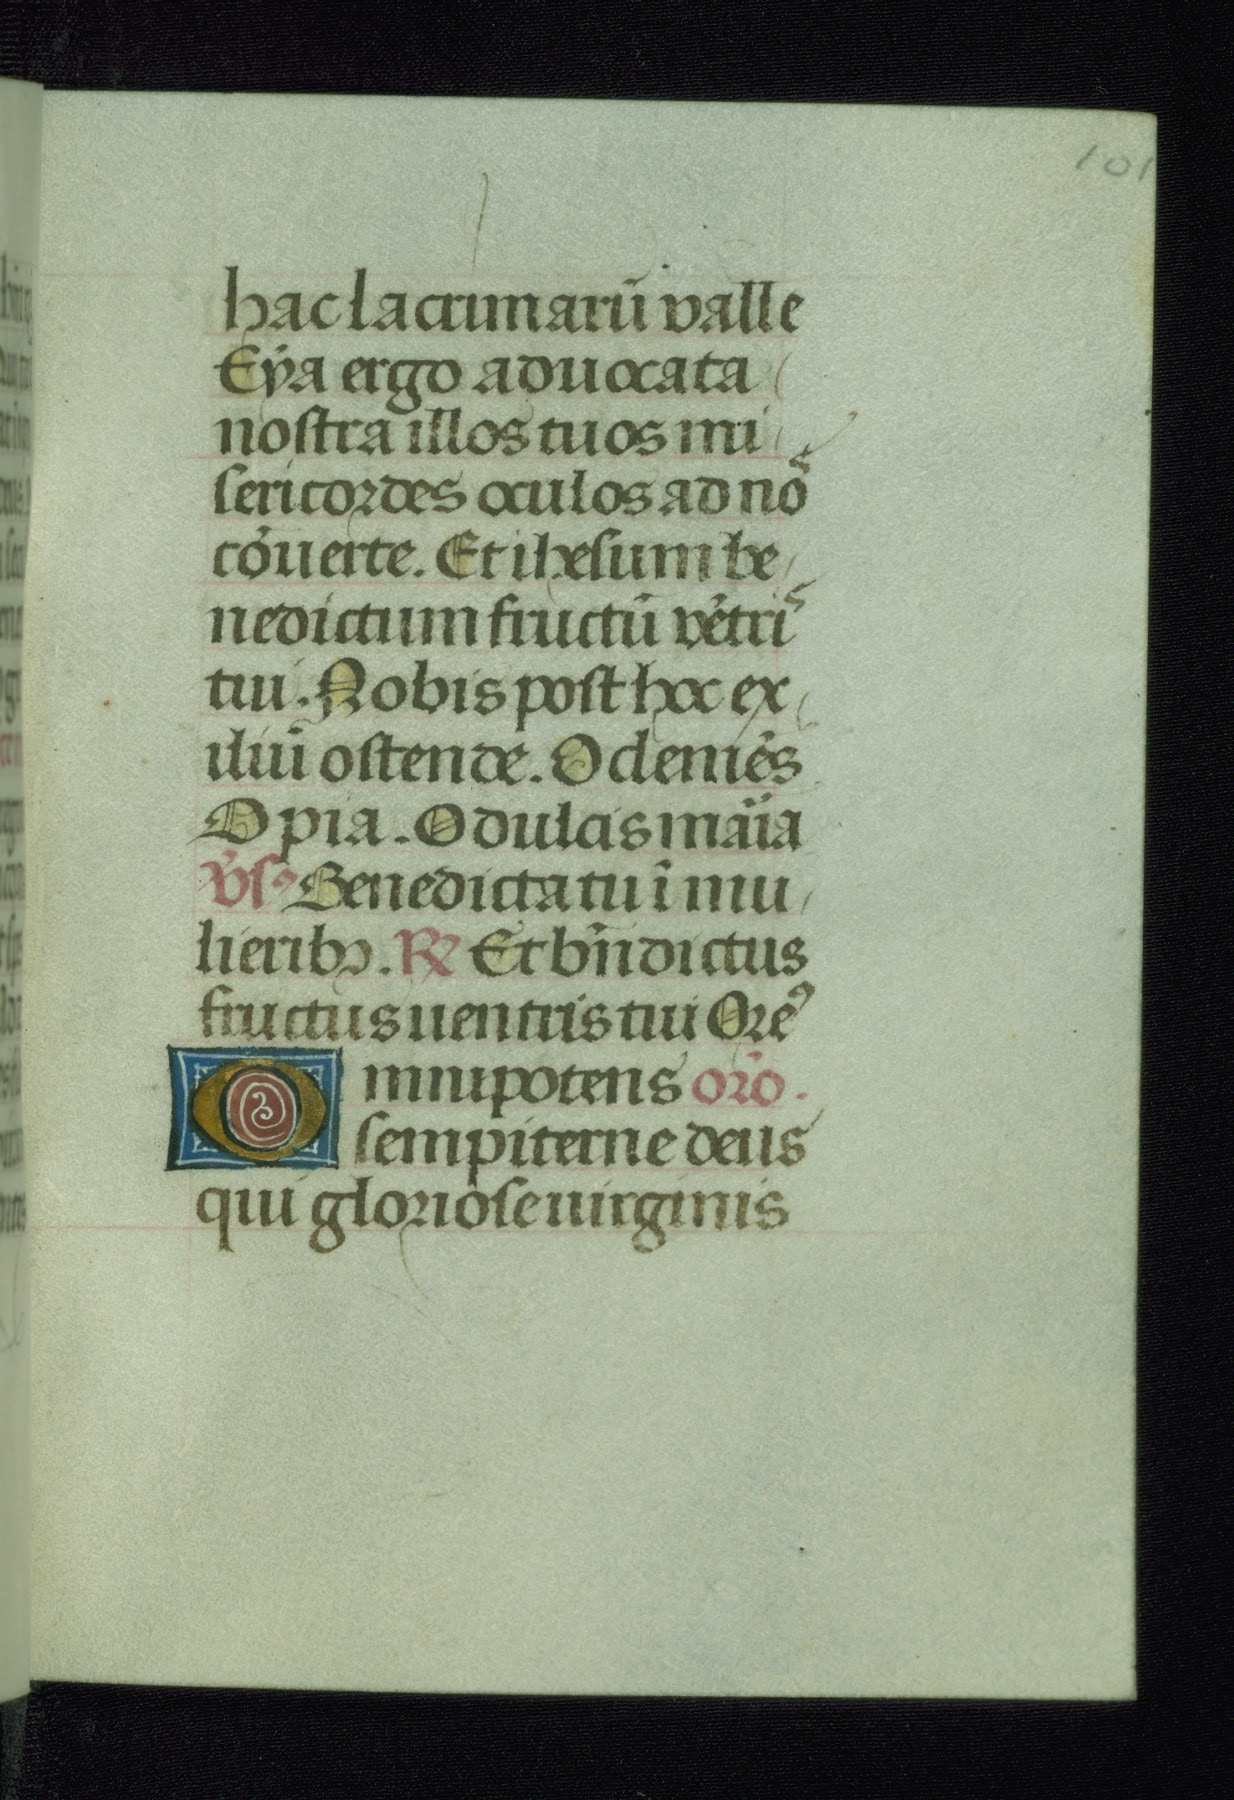 101
hac lacrimarū valle
Eya ergo aduocata
nostra illos tuos mi
sericordes oculos ad nōs
cōuerte. Et ihesum be
nedictum fructū vētris
tui. Nobis post hoc ex
iliū ostende. O clemēs
O pia. O dulcis maria
v̄s. Benedicta tu ī mu
lieribꝫ. ℟ Et bn̄dictus
fructus uentris tui Orēꝰ
Omnipotens orō.
sempiterne deus
qui gloriose uirginis